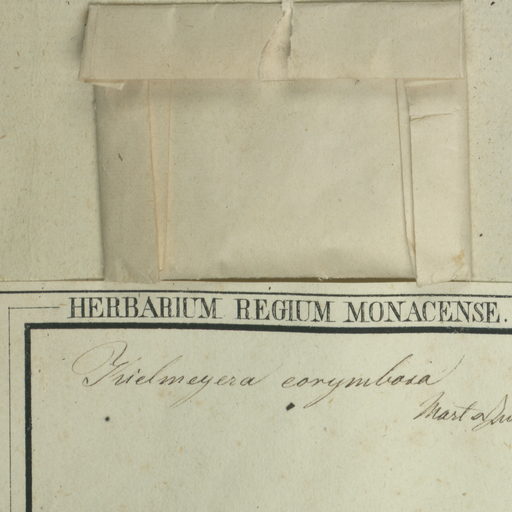 HERBARIUM REGIUM MONACENSE.
Kielmeyera corymbosa
Mart &